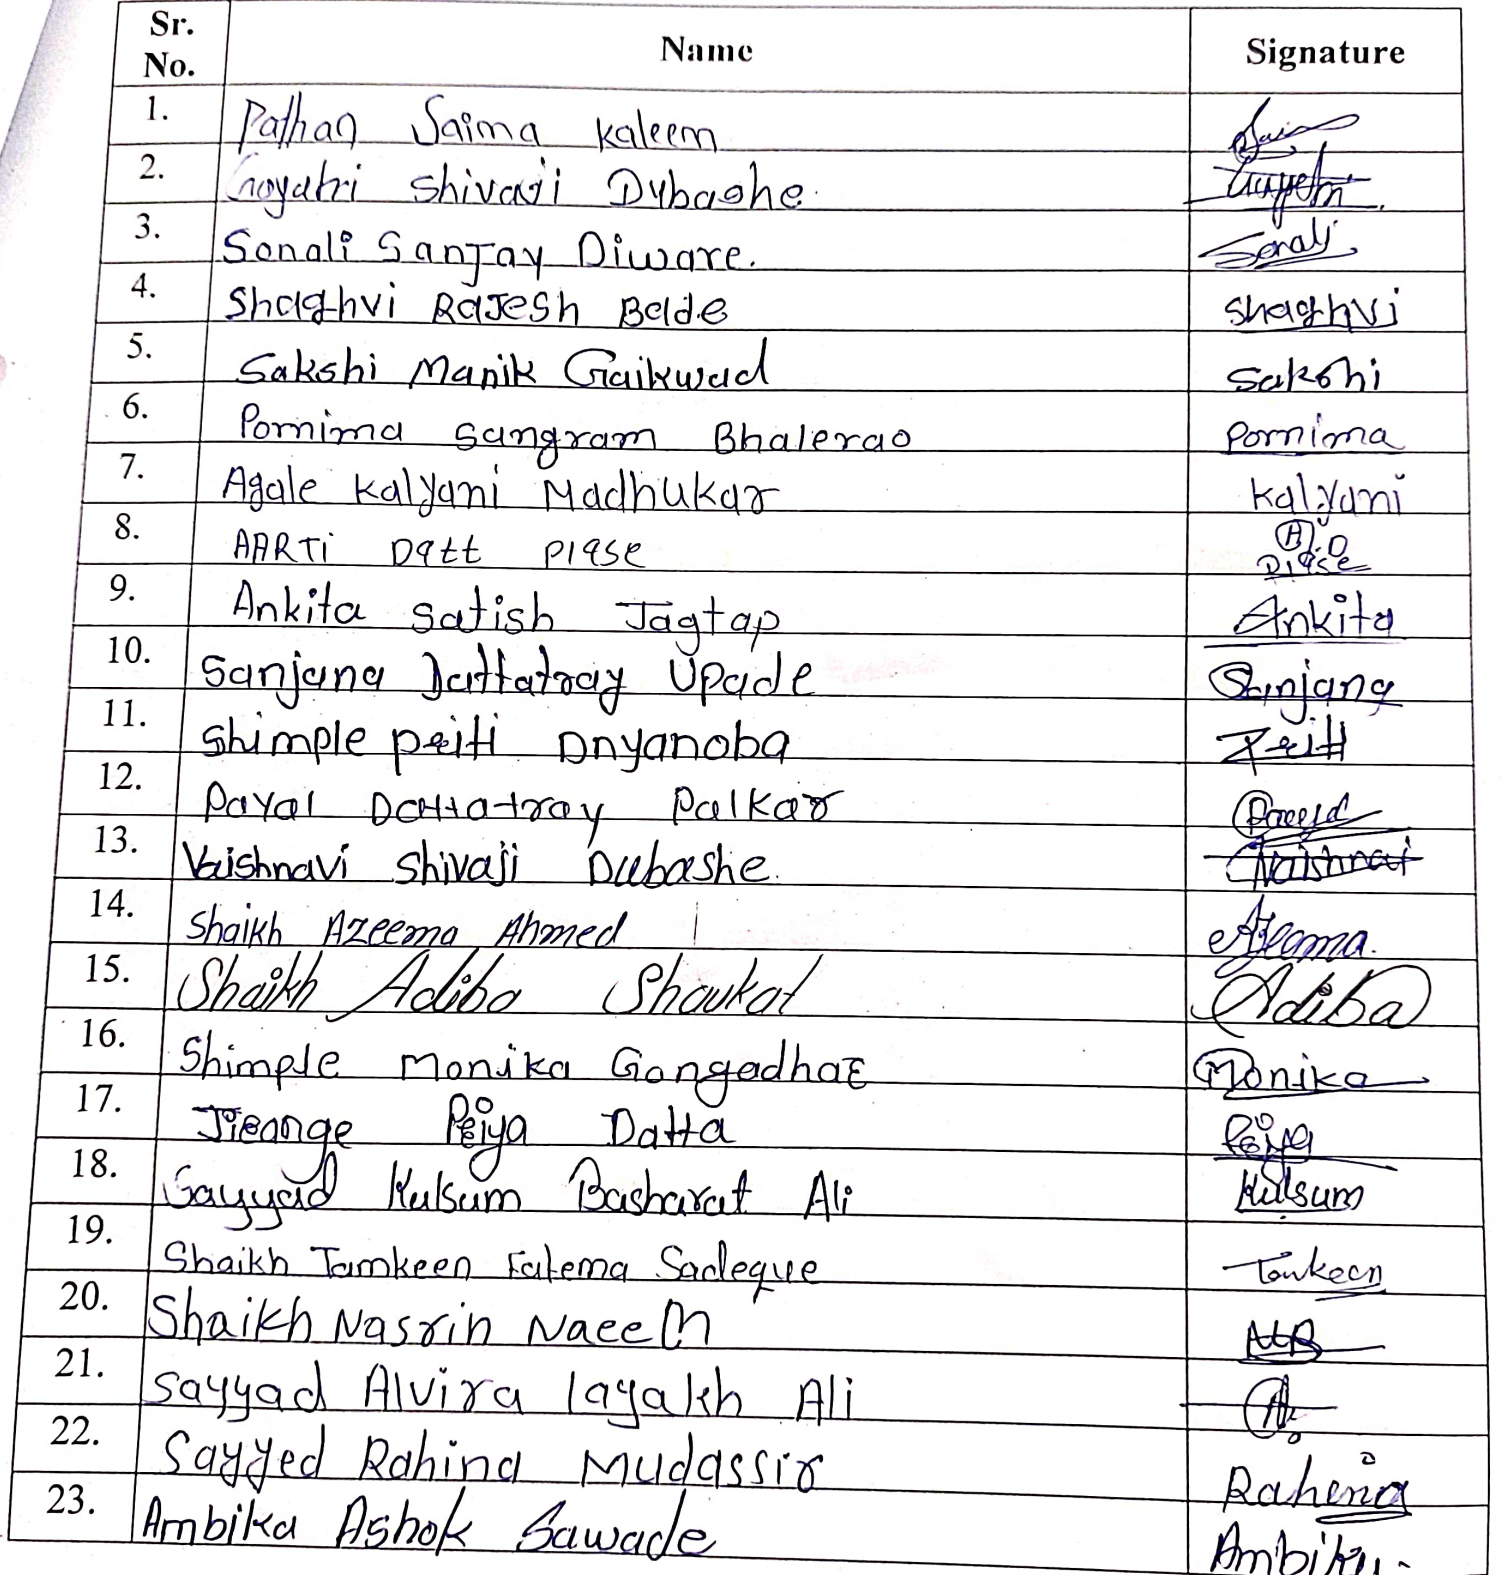 Sr. No. Name Signature
1. Pathan Saima Kaleem
2. Gayatri Shivaji Dubashe.
3. Sonali Sanjay Diware. Sonali
4. Shaghvi Rajesh Belde Shaghvi
5. Sakshi Manik Gaikwad Sakshi
6. Pornima Sangram Bhalerao Pornima
7. Agale Kalyani Madhukar Kalyani
8. AARTi Datt Piase A.D Piase
9. Ankita Satish Jagtap Ankita
10. Sanjana Dattatray Upade Sanjana
11. Shimple Priti Dnyanoba Priti
12. Payal Dattatray Palkar Payal
13. Vaishnavi Shivaji Dubashe. Vaishnavi
14. Shaikh Azeema Ahmed Azeema.
15. Shaikh Adiba Shaukat Adiba
16. Shimple Monika Gangadhar Monika
17. Jirange Priya Datta Priya
18. Sayyad Kulsum Basharat Ali Kulsum
19. Shaikh Tamkeen Fatema Sadeque Tamkeen
20. Shaikh Nasrin Naeem
21. Sayyad Alvira layakh Ali
22. Sayyed Rahina Mudassir Rahena
23. Ambika Ashok Sawade Ambika.